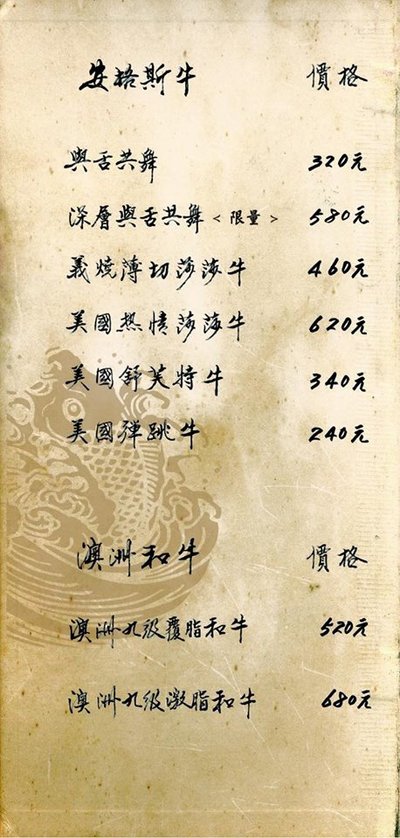 安格斯牛 價格
與舌共舞 320元
深層與舌共舞<限量> 580元
義燒薄切莎莎牛 460元
美國热情莎莎牛 620元
美國舒芙特牛 340元
美國彈跳牛 240元
澳洲和牛 價格
澳洲九級覆脂和牛 520元
澳洲九級激脂和牛 680元